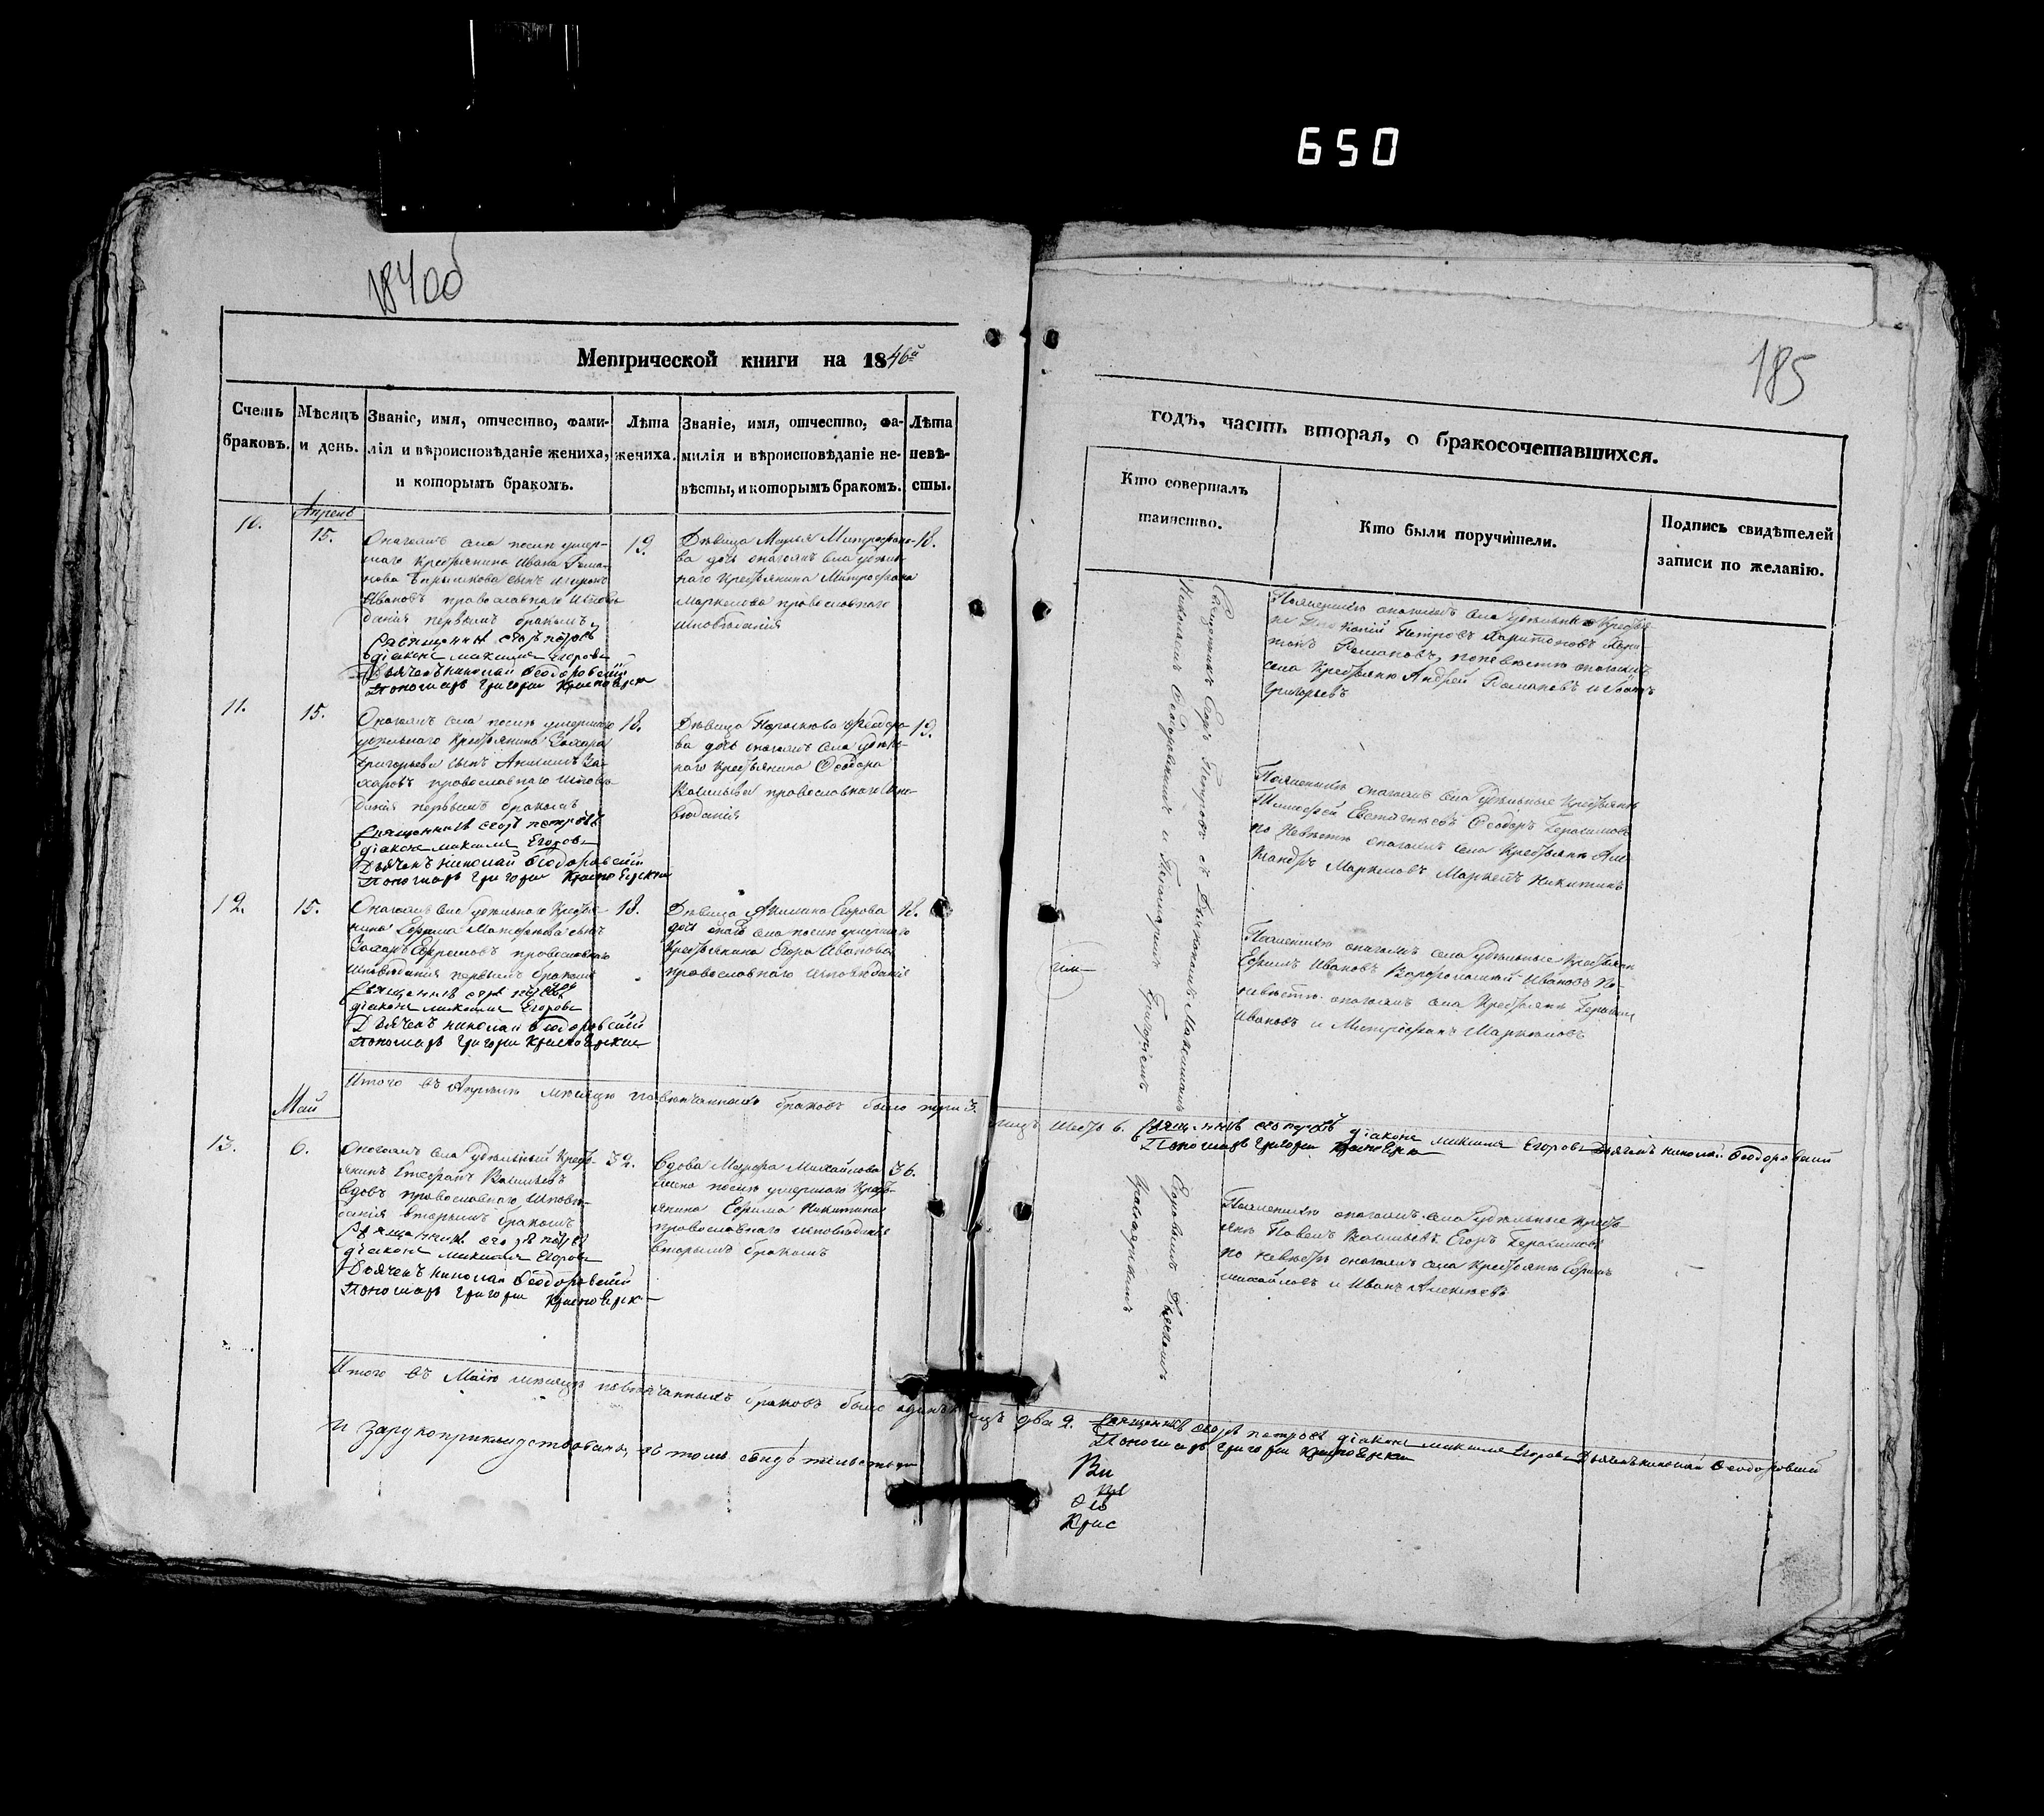 650
184 об
Метрической книги на 1846й
Счетъ браковъ.
Мѣсяцъ и день.
Званіе, имя, отчество, фами-
лія и вѣроисповѣданіе жениха,
и которымъ бракомъ.
Лѣта
жениха.
Званіе, имя, отчество, фа-
милія и вѣроисповѣданіе не-
вѣсты, и которымъ бракомъ.
Лѣта
невѣ-
сты.
10.
Апрель
15.
Оногожъ села послѣ умер-
шаго Крестьянина Ивана Рома-
нова сынъ
Ивановъ православнаго исповѣ
данія первымъ бракомъ
Священникъ Егоръ Петровъ
діаконъ Максимъ Егоровъ
Дьячекъ Николай Феодоровскій
Пономарь Григорій
19.
Дѣвица Марья Митрофано-
ва дочь оногожъ села удѣль-
наго Крестьянина Митрофана
Маркелова православнаго
исповѣданія
18.
11.
15.
Оногожъ села послѣ умершаго
удѣльнаго Крестьянина Захара
Григорьева сынъ За-
харовъ православнаго исповѣ
данія первымъ бракомъ
Священникъ Егоръ Петровъ
діаконъ Максимъ Егоровъ
Дьячекъ Николай Феодоровскій
Пономарь Григорій
18.
Дѣвица Параскова Феодоро-
ва дочь оногожъ села удѣль-
наго Крестьянина Феодора
Васильева православнаго испо-
вѣданія
19.
12.
15.
Оногожъ села удѣльнаго Крестья-
нина Ефрема сынъ
Захаръ Ефремовъ православнаго
исповѣданія первымъ бракомъ
Священникъ Егоръ Петровъ
діаконъ Максимъ Егоровъ
Дьячекъ Николай Феодоровскій
Пономарь Григорій
18.
Дѣвица Акилина Егорова
дочь оногожъ села послѣ умершаго
Крестьянина Егора Иванова
православнаго исповѣданія
18.
Итого въ Апрелѣ мѣсяцѣ повѣнчанныхъ браковъ было три 3.
Май
13.
6.
Оногожъ села удѣльный Кресть-
янинъ Стефанъ Васильевъ
вдовъ православнаго исповѣ-
данія вторымъ бракомъ
Священникъ Егоръ Петровъ
діаконъ Максимъ Егоровъ
Дьячекъ Николай Феодоровскій
Пономарь Григорій
39.
Вдова Михайлова
послѣ умершаго Кресть-
янина Ефима Никитина
православнаго исповѣданія
вторымъ бракомъ
36.
Итого въ Маіѣ мѣсяцѣ повѣнчанныхъ браковъ было одинъ
185
годъ, часть вторая, о бракосочетавшихся.
Кто совершалъ
таинство.
Кто были поручители.
Подпись свидѣтелей
записи по желанію.
Священникъ Егоръ Петровъ съ Діакономъ Максимомъ Егоровымъ Дьячкомъ
Николаемъ Феодоровскимъ и Пономаремъ Григоріемъ
По женихѣ оногожъ села удѣльные Крестья-
не Петровъ Харитоновъ
Романовъ, по невѣстѣ оногожъ
села Крестьяне Андрей Романовъ и
Григорьевъ
По женихѣ оногожъ села удѣльные Крестьяне
Тимофей Феодоръ Герасимовъ
по невѣстѣ оногожъ села Крестьяне
Маркеловъ Маркелъ Никитинъ
По женихѣ оногожъ села удѣльные Крестьяне
Ефимъ Ивановъ Ивановъ по
невѣстѣ оногожъ села Крестьяне Герасимъ
Ивановъ и Митрофанъ Маркеловъ
лицъ шесть 6. Священникъ Егоръ Петровъ діаконъ Максимъ Егоровъ Дьячекъ Николай Феодоровскій
Пономарь Григорій
По женихѣ оногожъ села удѣльные Кресть-
яне Павелъ Васильевъ Егоръ Герасимовъ
по невѣстѣ оногожъ села Крестьяне Ефимъ
Михайловъ и Иванъ Алексѣевъ
лицъ два 2. Священникъ Егоръ Петровъ діаконъ Максимъ Егоровъ Дьячекъ Николай Феодоровскій
Пономарь Григорій